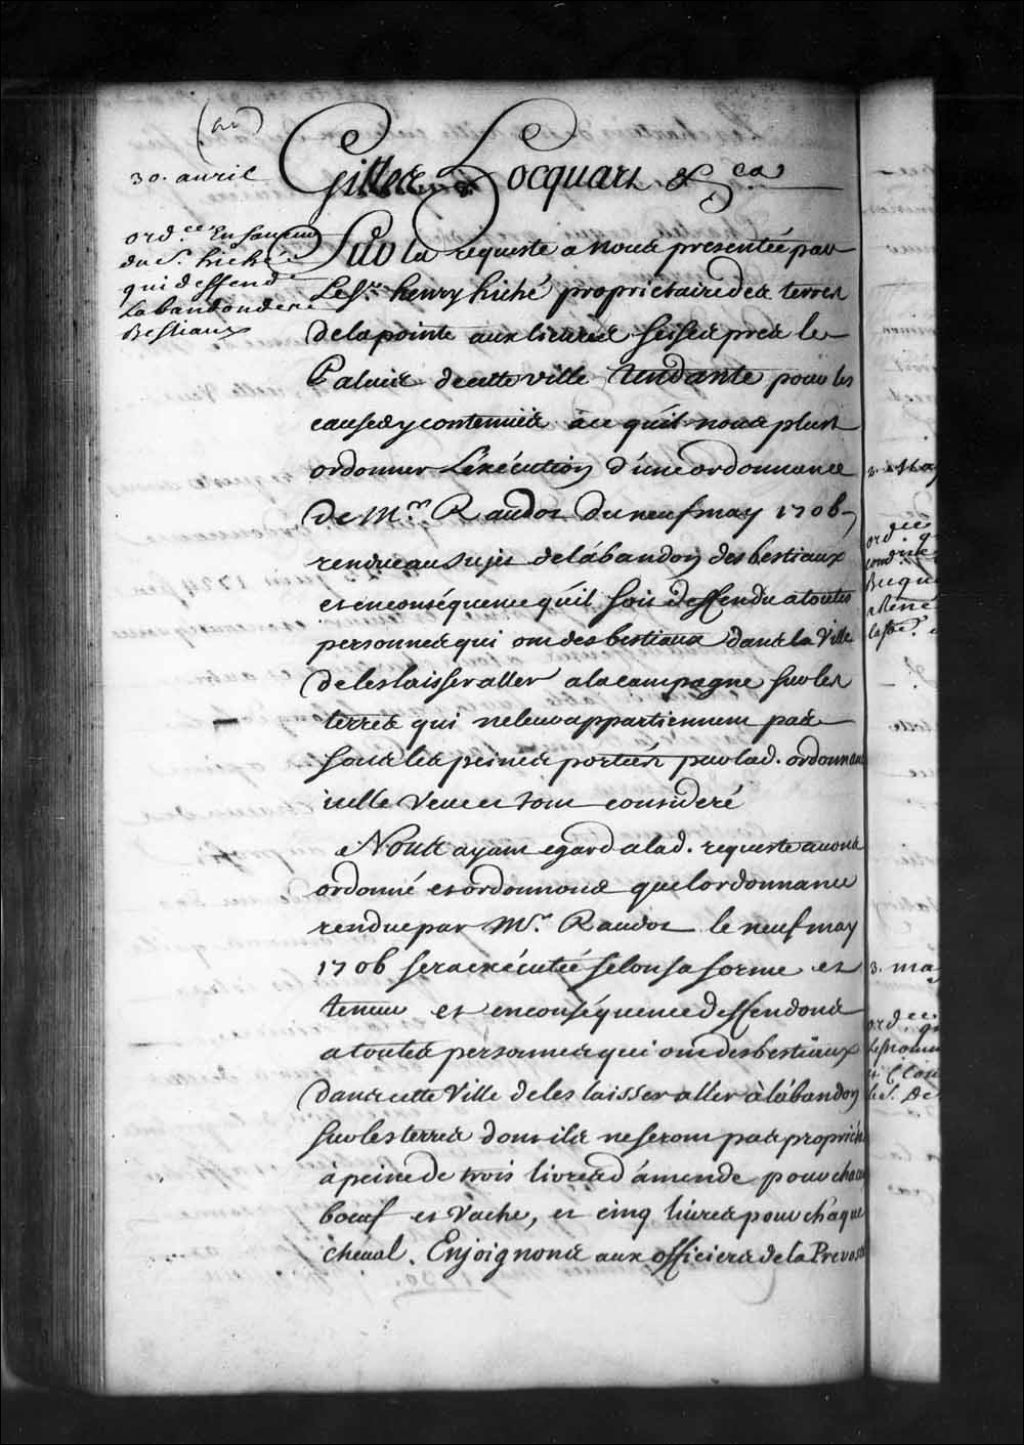 30. avril
Gilles Hocquart &ca
ord.ce En faveur
du Sr. hiché
qui deffend
Labandon des
Bestiaux
Sur la requeste a nous presentée par
Le Sr. henry hiché proprietaire des terres
de la pointe aux lievres seises pres le
Palais de cette ville Tendante pour les
causes y contenües à ce qu'il nous plust
ordonner L'éxécution d'une ordonnance
de Mr. Raudot du neuf may 1706
rendue au sujet de lábandon des bestiaux
et en conséquence qu'il soit deffendu a toutes
personnes qui ont des bestiaux dans la Ville
de les laisser aller a la campagne sur les
terres qui ne leur appartiennent pas
sous les peines portées par lad. ordonnan
icelle Veue et tout consideré
Nous ayant egard a lad. requeste avons
ordonné et ordonnons que lordonnance
rendue par Mr. Raudot le neuf may
1706 sera exécutée selon sa forme et
teneur et en conséquence deffendons
a toutes personnes qui ont des bestiaux
dans cette Ville de les laisser aller à lábandon
sur les terres dont ils ne seront pas proprié
à peine de trois livres d'ámende pour chaq
boeuf et Vache, et cinq livres pour chaque
cheval. Enjoignons aux officiers de la Prevost
ord.ce
René
3. ma
ord.ce